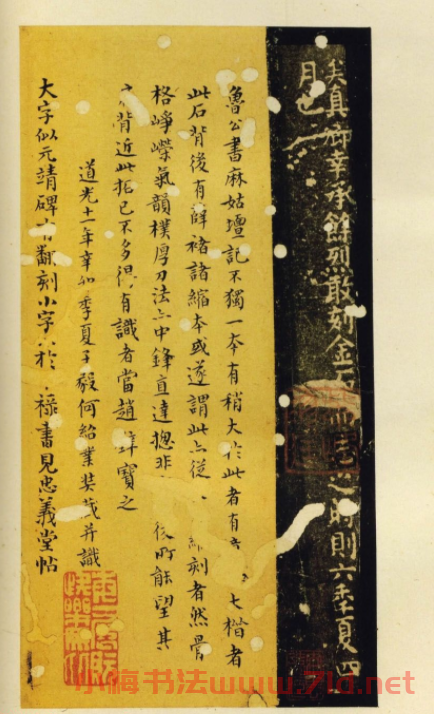 矣真卿幸承餘烈敢刻金石而志之時則六年夏四
月也
魯公書麻姑壇記不獨一本有稍大於此者有大楷者
此石背後有薛褚諸縮本或遂謂此亦從刻者然骨
格崢嶸氣韻樸厚刀法亦中鋒直達揔非後所能望其
背近此拓已不多得有識者當趙璧寶之
道光十一年辛卯季夏子毅何紹業裝茂并識
大字似元靖碑有翻刻小字於祿書見忠義堂帖
小梅书法www.7ld.net